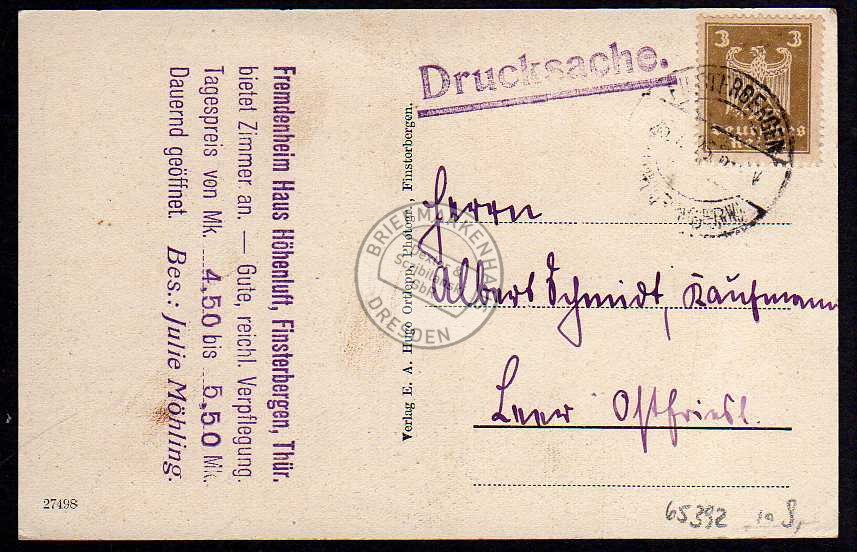 Fremdenheim Haus Höhenluft, Finsterbergen, Thür.
bietet Zimmer an. — Gute, reichl. Verpflegung.
Tagespreis von Mk. 4,50 bis 5,50 Mk.
Dauernd geöffnet. Bes.: Julie Möhling.
27498
Verlag E. A. Hugo Orthepp, Photogr., Finsterbergen.
Drucksache.
3 3
Deutsches
FINSTERBERGEN
Herrn
Albert Schmidt, Kaufmann
Leer Ostfriesl.
BRIEFMARKENHAUS
DRESDEN
65392